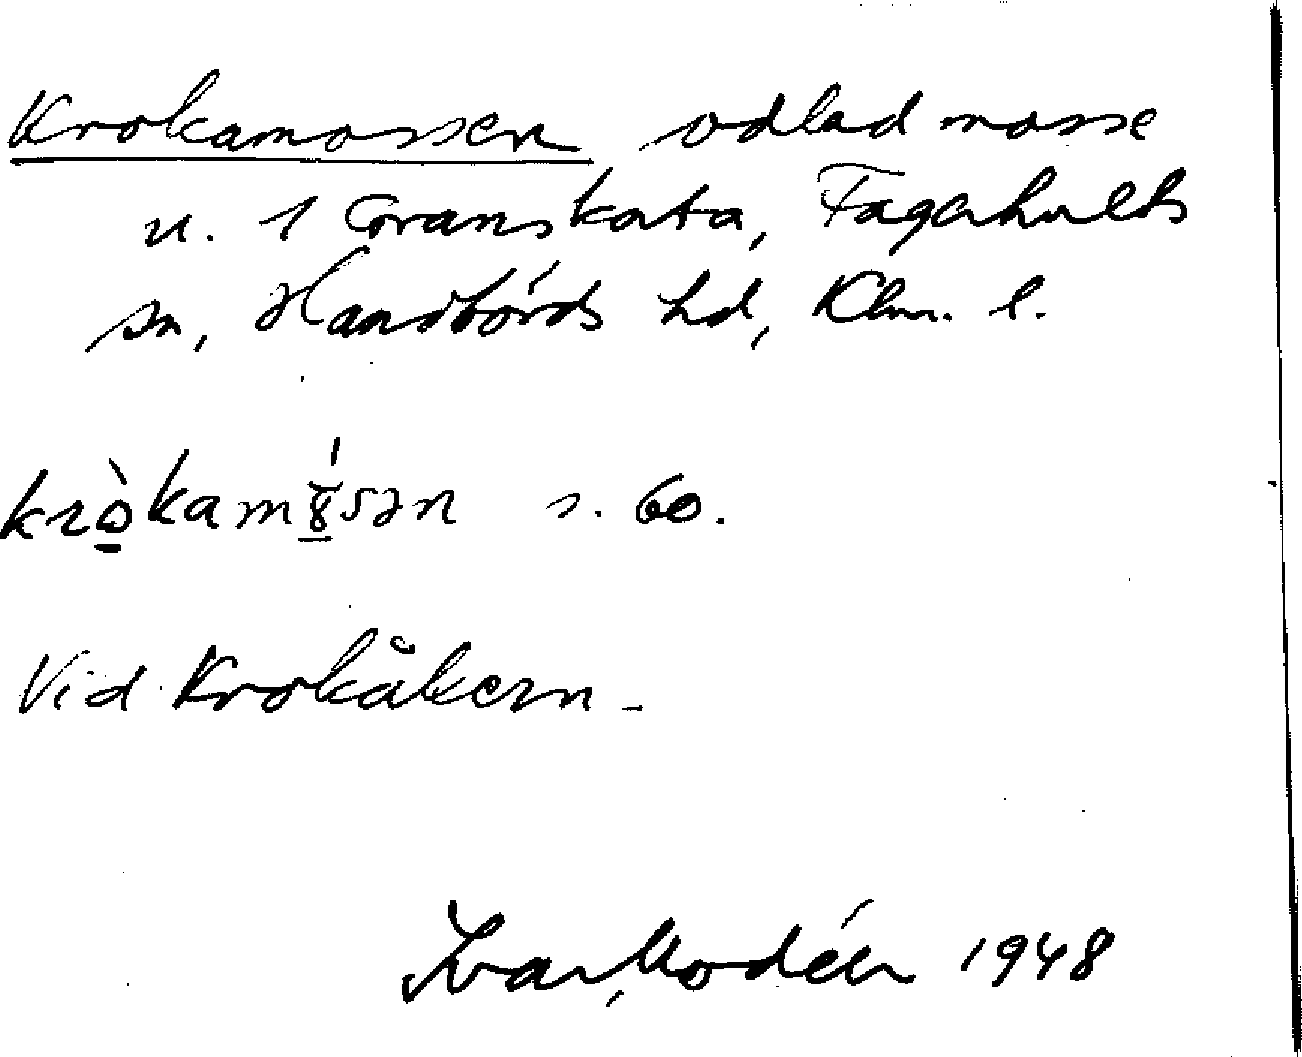 Krokamossen, odlad mosse
u. 1 Granskata, Fagerhults
sn, Handbörds hd, Klm. l.
s. 60.
Vid Krokåkern.
Ivar Modéer 1948